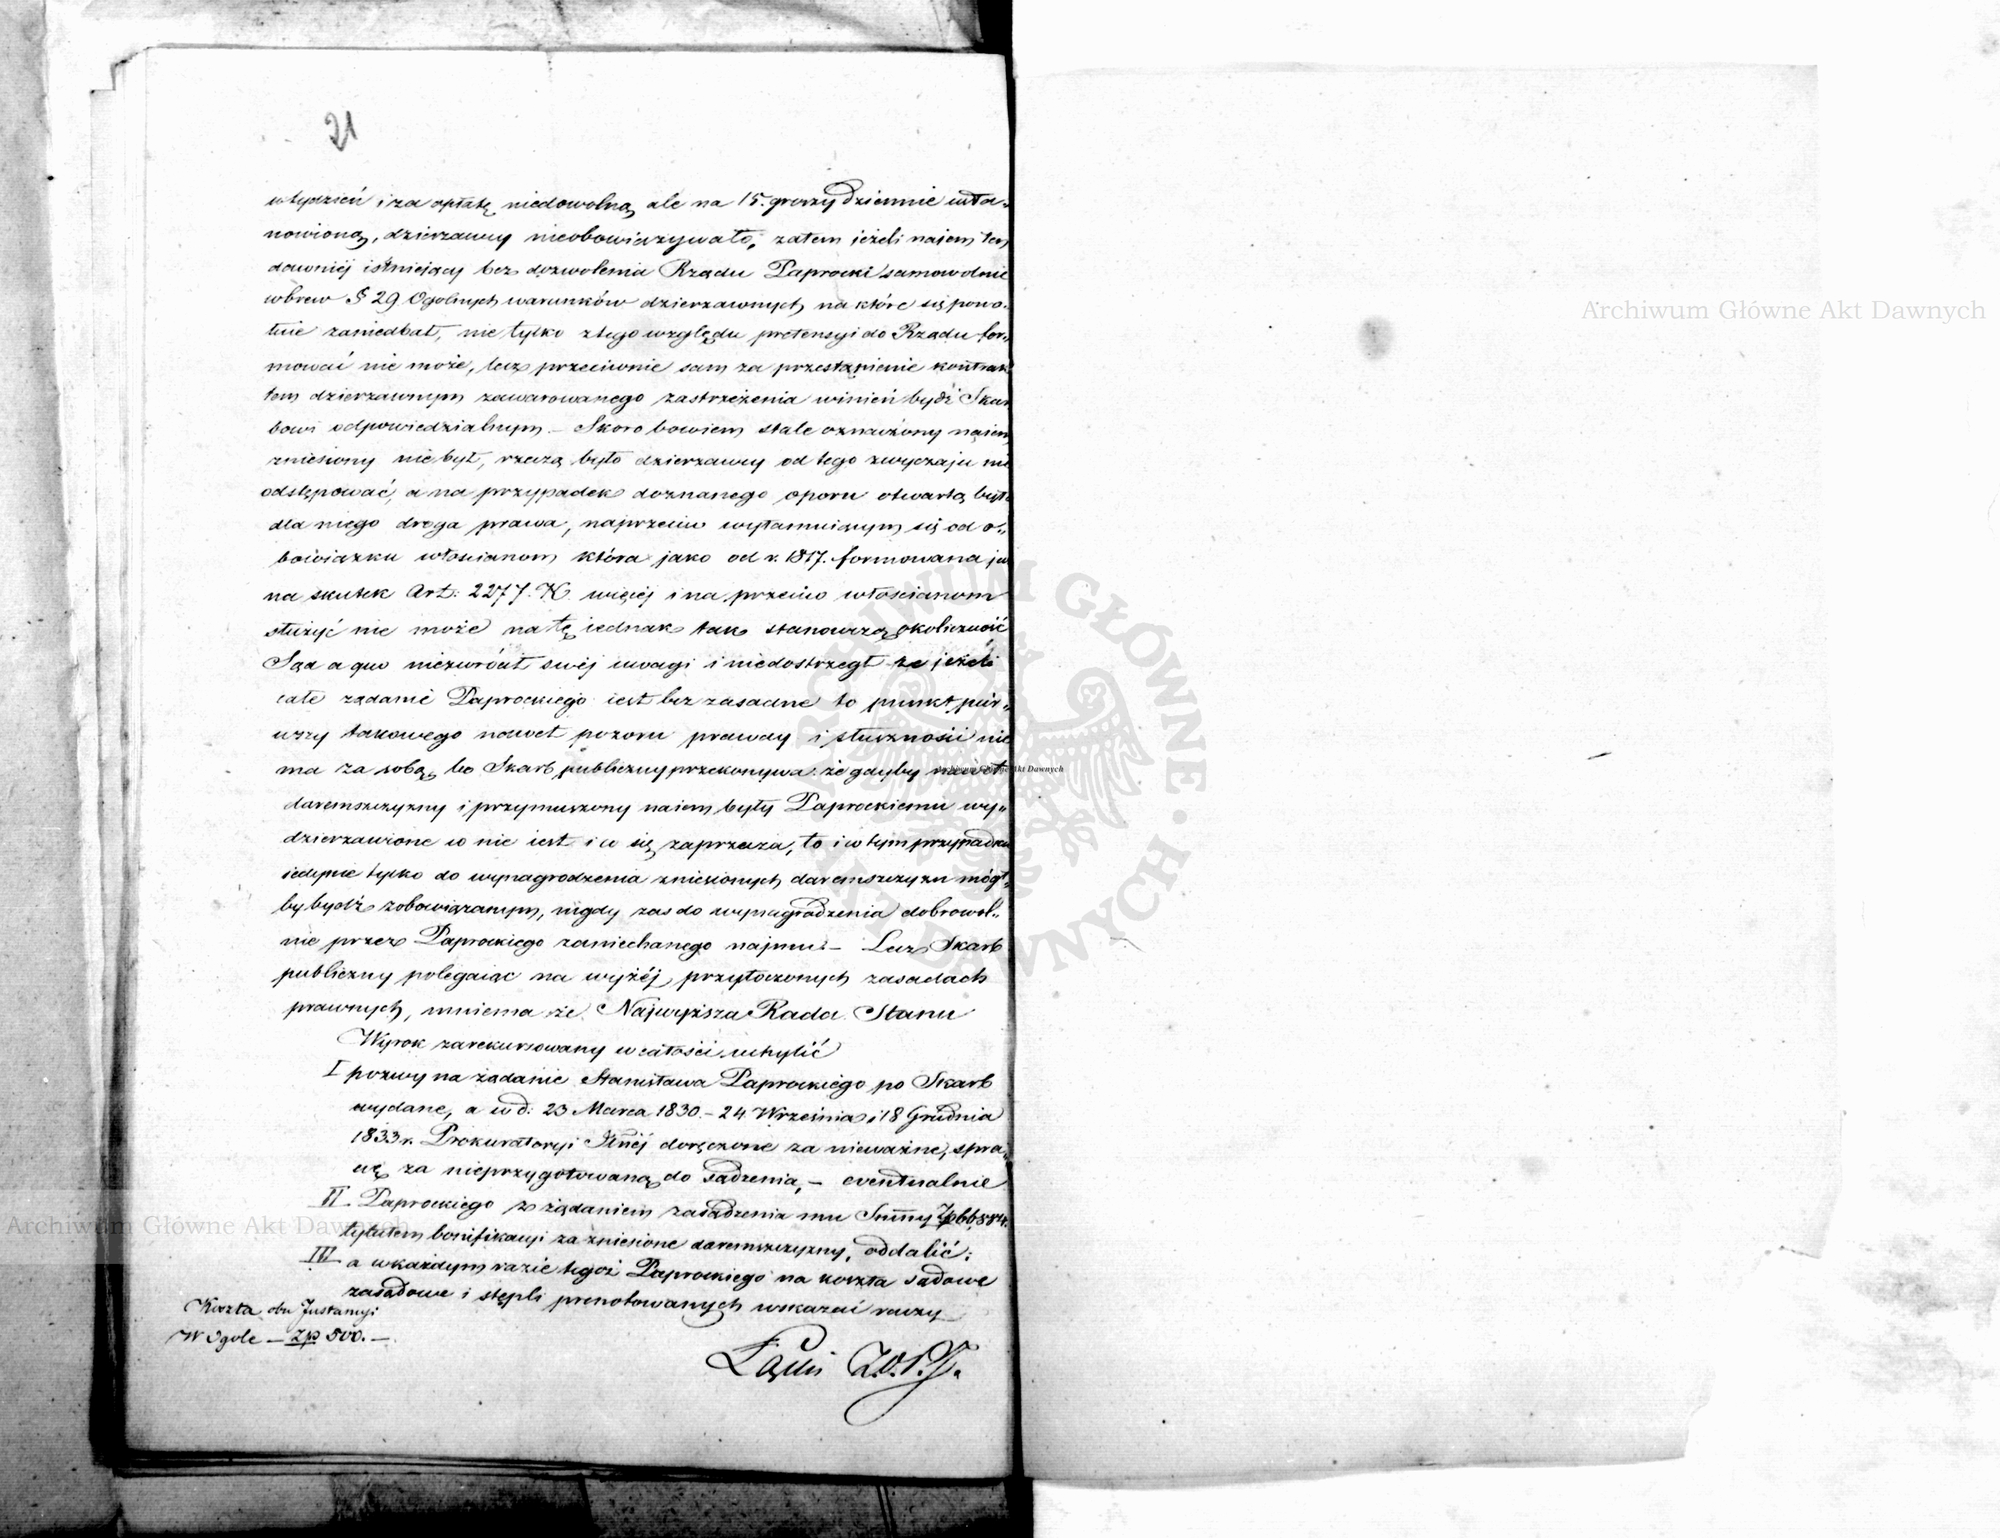 21
w tydzień i za opłatę niedowolną ale na 15. groszy dziennie usta„
nowioną, dzierzawcy nieobowiązywało, zatem ieżeli najem ten
dawniéj istniejący bez dozwolenia Rządu Paprocki samowolnie
wbrew § 29 Ogólnych warunków dzierzawnych, na które się powo„
łuie zaniedbał, nie tylko z tego względu pretensyi do Rządu for„
mować nie może, lecz przeciwnie sam za przestąpienie kontrak
tem dzierzawnym zawarowanego zastrzeżenia winień bydź Skar
bowi odpowiedzialnym – Skoro bowiem stale oznaczony naiem
zniesiony nie był, rzeczą było dzierzawcy od tego zwyczaju nie
odstępować, a na przypadek doznanego oporu otwartą była
dla niego droga prawa, naprzeciw wyłamuiącym się od o„
bowiązku włościanom która jako od r. 1817. formowana już
na skutek Art: 2277. K. więcéj i na przeciw włościanom
służyć nie może na tę iednak tak stanowczą okoliczność
Sąd a quo niezwrócił swéj uwagi i niedostrzegł że jeżeli
całe żądanie Paprockiego iest bez zasadne to punkt pier„
wszy takowego nawet pozoru prawdy i słuszności nie
ma za sobą, bo Skarb publiczny przekonywa że gdyby nawet
daremszczyzny i przymuszony naiem były Paprockiemu wy„
dzierzawione co nie iest i co się zaprzecza, to i w tym przypadku
iedynie tylko do wynagrodzenia zniesionych daremszczyzn mógł„
by bydź zobowiązanym, nigdy zas do wynagradzenia dobrowol„
nie przez Paprockiego zaniechanego najmu. – Lecz Skarb
publiczny polegaiąc na wyżéj przytoczonych zasadach
prawnych, mniema że Najwyższa Rada Stanu
Wyrok zarekursowany w całości uchylić
I pozwy na żądanie Stanisława Paprockiego po Skarb
wydane, a w d: 23 Marca 1830. – 24 Września i 18 Grudnia
1833 r. Prokuratoryi Jlnéj doręczone za nieważne, spra„
wę za nieprzygotowaną do sądzenia, – eventualnie
II Paprockiego z żądaniem zasądzenia mu Summy Zp 66,884.
tytułem bonifikacyi za zniesione daremszczyzny, oddalić;
III a w każdym razie tegoż Paprockiego na koszta sądowe
zasądowe i stępli prenotowanych wskazać raczy
Koszta obu Instancyi
W Ogóle – Zp 500. –
Archiwum Główne Akt Dawnych
Archiwum Główne Akt Dawnych
Archiwum Główne Akt Dawnych
ARCHIWUM GŁÓWNE AKT DAWNYCH